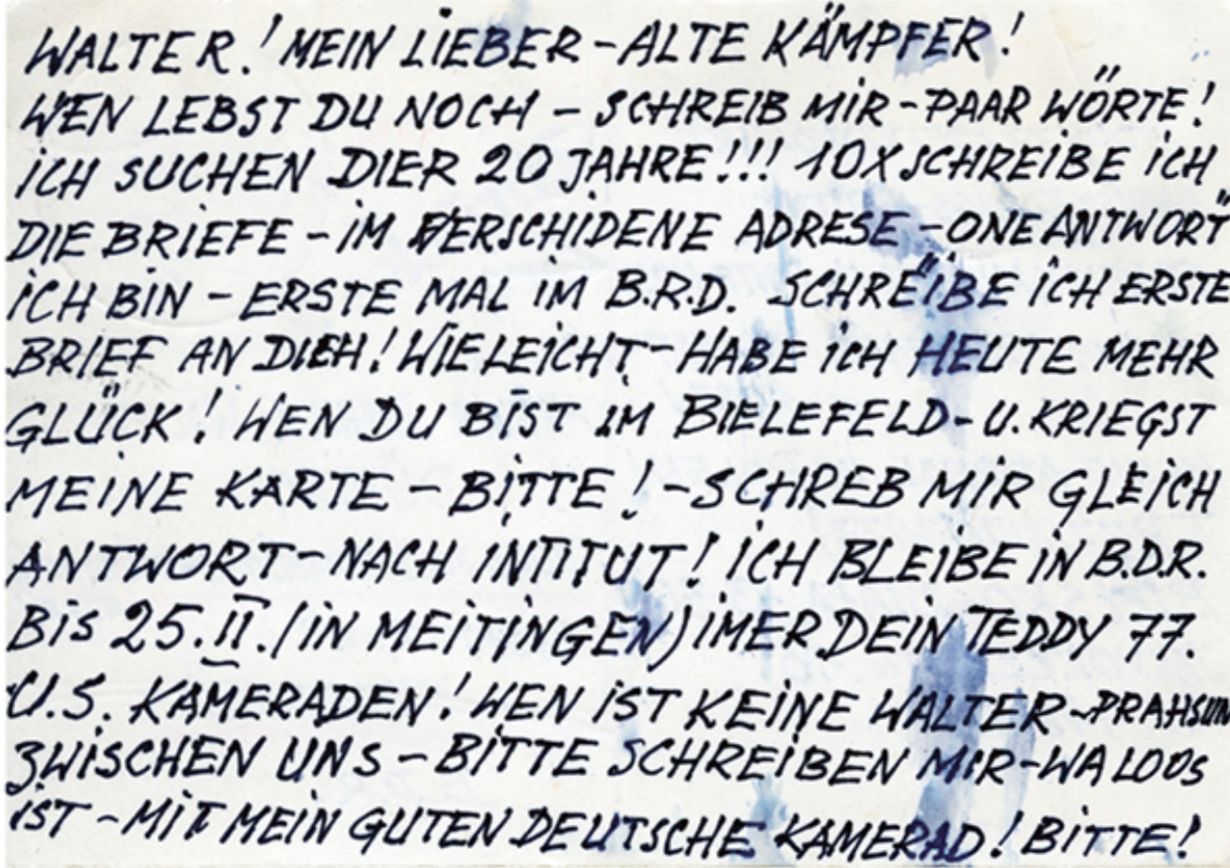 WALTER! MEIN LIEBER – ALTE KÄMPFER!
WEN LEBST DU NOCH – SCHREIB MIR – PAAR WÖRTE!
ICH SUCHEN DIER 20 JAHRE!!! 10X SCHREIBE ICH
DIE BRIEFE – IM VERSCHIDENE ADRESE – ONE ANTWORT
ICH BIN – ERSTE MAL IM B.R.D. SCHREIBE ICH ERSTE
BRIEF AN DICH! WIELEICHT – HABE ICH HEUTE MEHR
GLÜCK! WEN DU BIST IM BIELEFELD – U. KRIEGST
MEINE KARTE – BITTE! – SCHREB MIR GLEICH
ANTWORT – NACH INTITUT! ICH BLEIBE IN B.D.R.
BIS 25.II. (IN MEITINGEN) IMER DEIN TEDDY 77.
U.S. KAMERADEN! WEN IST KEINE WALTER – 
ZWISCHEN UNS – BITTE SCHREIBEN MIR – WA LOOS
IST – MIT MEIN GUTEN DEUTSCHE KAMERAD! BITTE!